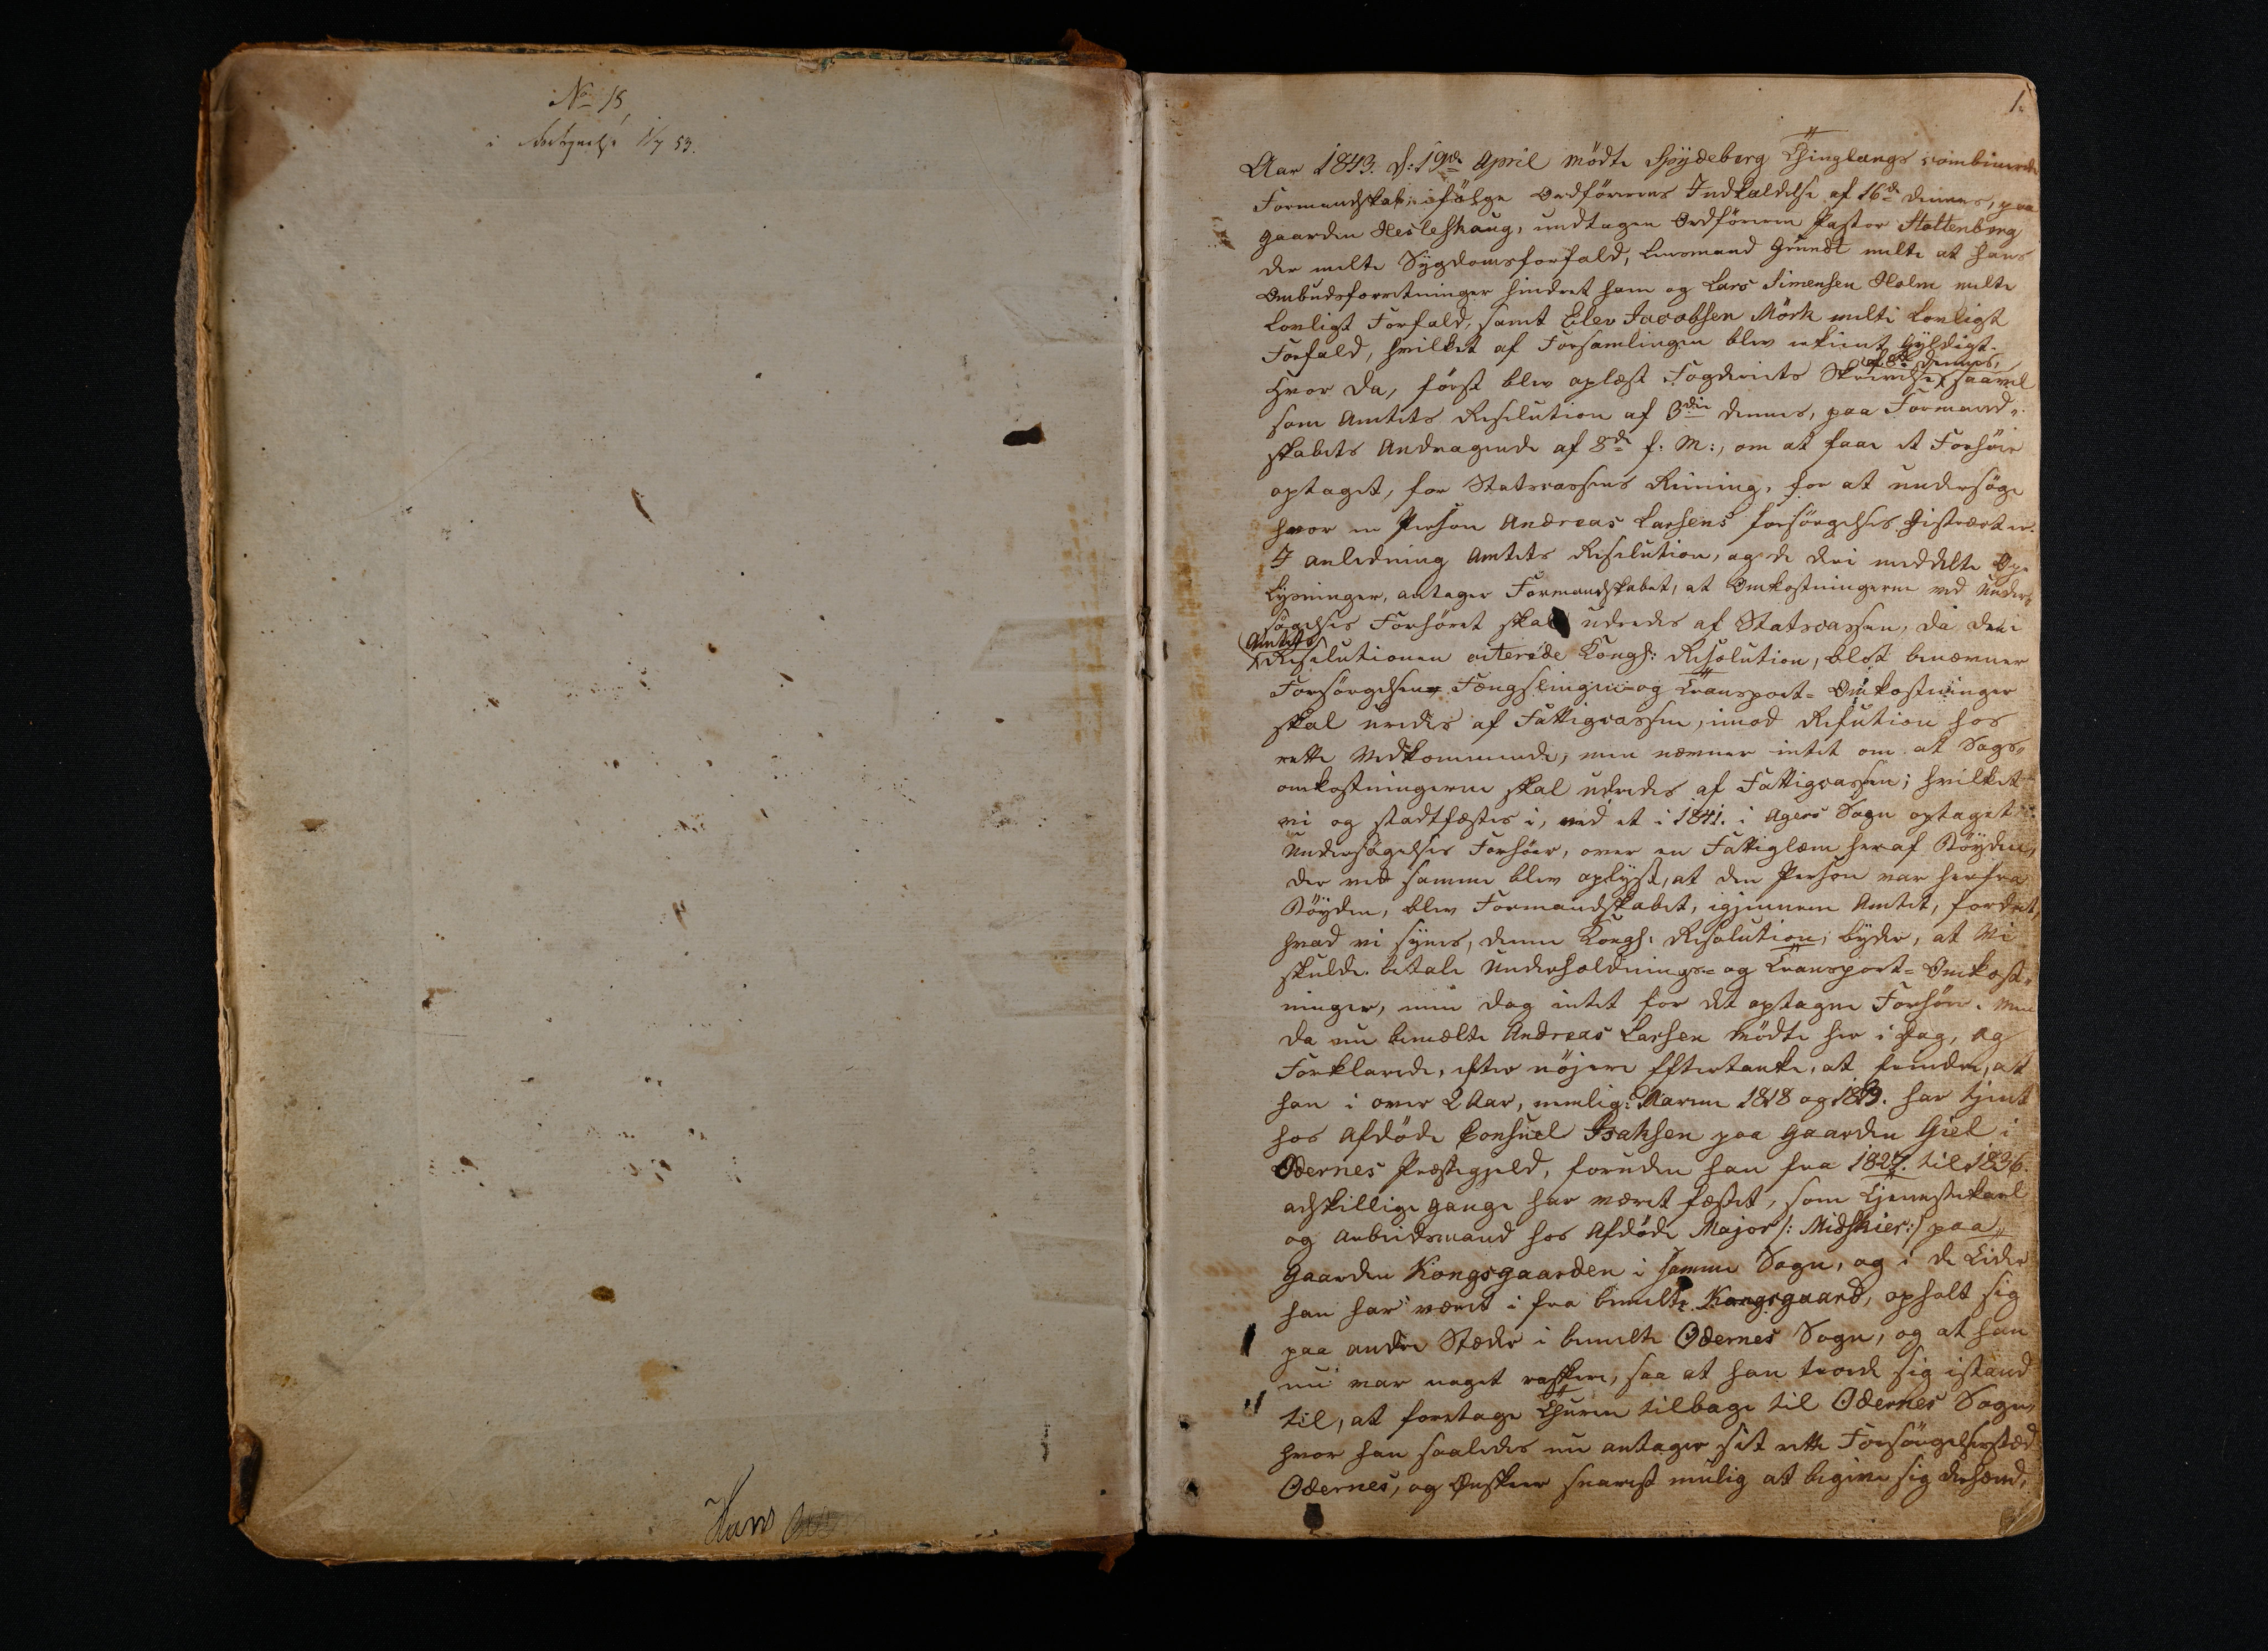 No 15,
i 1/7 53.
Hans
1.
Aar 1843. d: 19de April mödte Spydeberg Thinglaugs combinerede
Formandskab ifölge Ordförerens Indkaldelse af 16de dennes, paa
Gaarden Hesleskaug, undtagen Ordföreren Pastor Stoltenberg
der melte Sygdomsforfald, Lensmand Grundt melte at hans
Ombudsforretninger hindret ham og Lars Simensen Holm melte
Lovligt Forfald, samt Elev Jacobsen Mörk melte Lovligt
Forfald, hvilket af Forsamlingen blev erkient Gyldigt.
af 8de dennes,
Hvor da, först blev oplæst Fogderiets Skrivelse saavel
som Amtets Resolution af 3die dennes, paa Formand-
skabets Andragende af 8de f: M:, om at faae et Forhöir
optaget, for Statscassens Regning, for at undersöge
hvor en Person Andreas Larsens forsörgelses Distrect er.
I anledning Amtets Resolution, og de deri meddelte Op-
lysninger, antager Formandskabet, at Omkostningerne ved Under-
sögelses Forhöret skal udredes af Statscassen, da den i
Amtets
Resolutionen citerede Kongl: Resolution, blot benævner
Forsörgelsen Fængslingen og Transport- Omkostninger
skal uredes af Fattigcassen, imod Refution hos
rette Vedkommende, men nævner intet om at Sags-
omkostningerne skal udredes af Fattigcassen; hvilket
vi og stadtfæstes i, ved et i 1841. i Agers Sogn optaget
Undersögelses Forhöir, over en Fattiglem her af Böyden,
der ved samme blev oplyst, at den Person var herfra
Böyden, blev Formandskabet, igjennem Amtet, fordret,
hvad vi synes, denne Kongl: Resolution, byder, at Vi
skulde betale Underholdnings- og Transport- Omkost-
ninger, men dog intet for det optagne Forhöir. Men
da nu bemelte Andreas Larsen mödte her i Dag, og
Forklarede, efter nöjere Eftertanke, at han
han i over 2 Aar, nemlig: Aarene 1818 og 1819. har tjent
hos Afdöde Consuel Isaksen paa Gaarden Giel i
Odernes Præstegjeld, foruden han fra 1827. til 1836.
adskillige gange har været fæstet, som Tjenestekarl
og Arbeidsmand hos Afdöde Major /: Midskier:/ paa
Gaarden Kongsgaarden i samme Sogn, og i de Tider
han har været i fra bemelte Kongsgaard, opholt sig
paa andre Stæder i bemelte Odernes Sogn, og at han
nu var noget raskere, saa at han troede sig istand
til, at foretage Thuren tilbage til Odernes Sogn,
hvor han saaledes nu antager sit rette Forsörgelsestæd
Odernes, og Önsker snarest mulig at begive sig derhend,